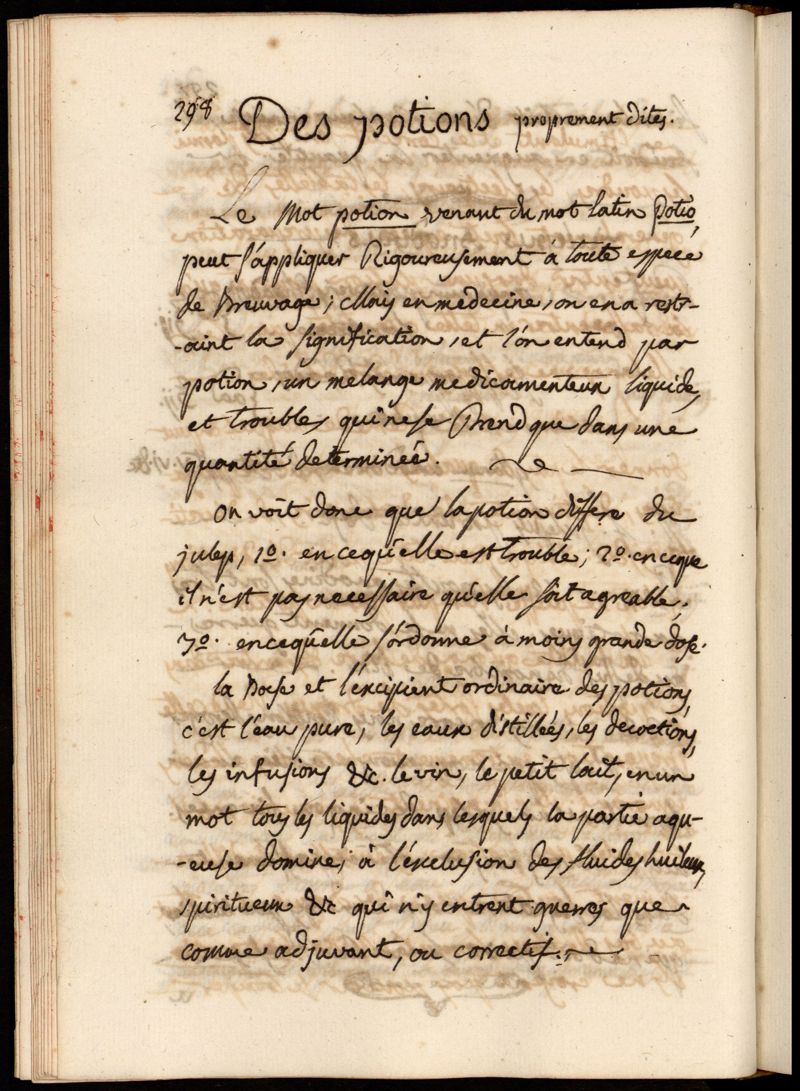 298 Des potions proprement dites.
Le Mot potion venant du mot latin Potio,
peut s'appliquer Rigoureusement à toute espece
de Breuvage; Mais en medecine, on en a restr-
-aint la signification, et l'on entend par
potion, un melange medicamenteux liquide,
et trouble, qui ne se Prend que dans une
quantité determinée.
On voit donc que la potion differe du
julep, 1º. en cequ'elle est trouble; 2º. en ceque
il n'est pas necessaire qu'elle soit agreable;
3º. en cequ'elle s'ordonne à moins grande dose.
la Base et l'excipient ordinaire des potions,
c'est l'eau pure, les eaux distillées, les decoctions,
les infusions &c. le vin, le petit lait, en un
mot tous les liquides dans lesquels la partie aqu-
-euse domine, à l'exclusion des fluides huileux,
spiritueux &c qui n'y entrent guerres que
comme adjuvant, ou correctif.